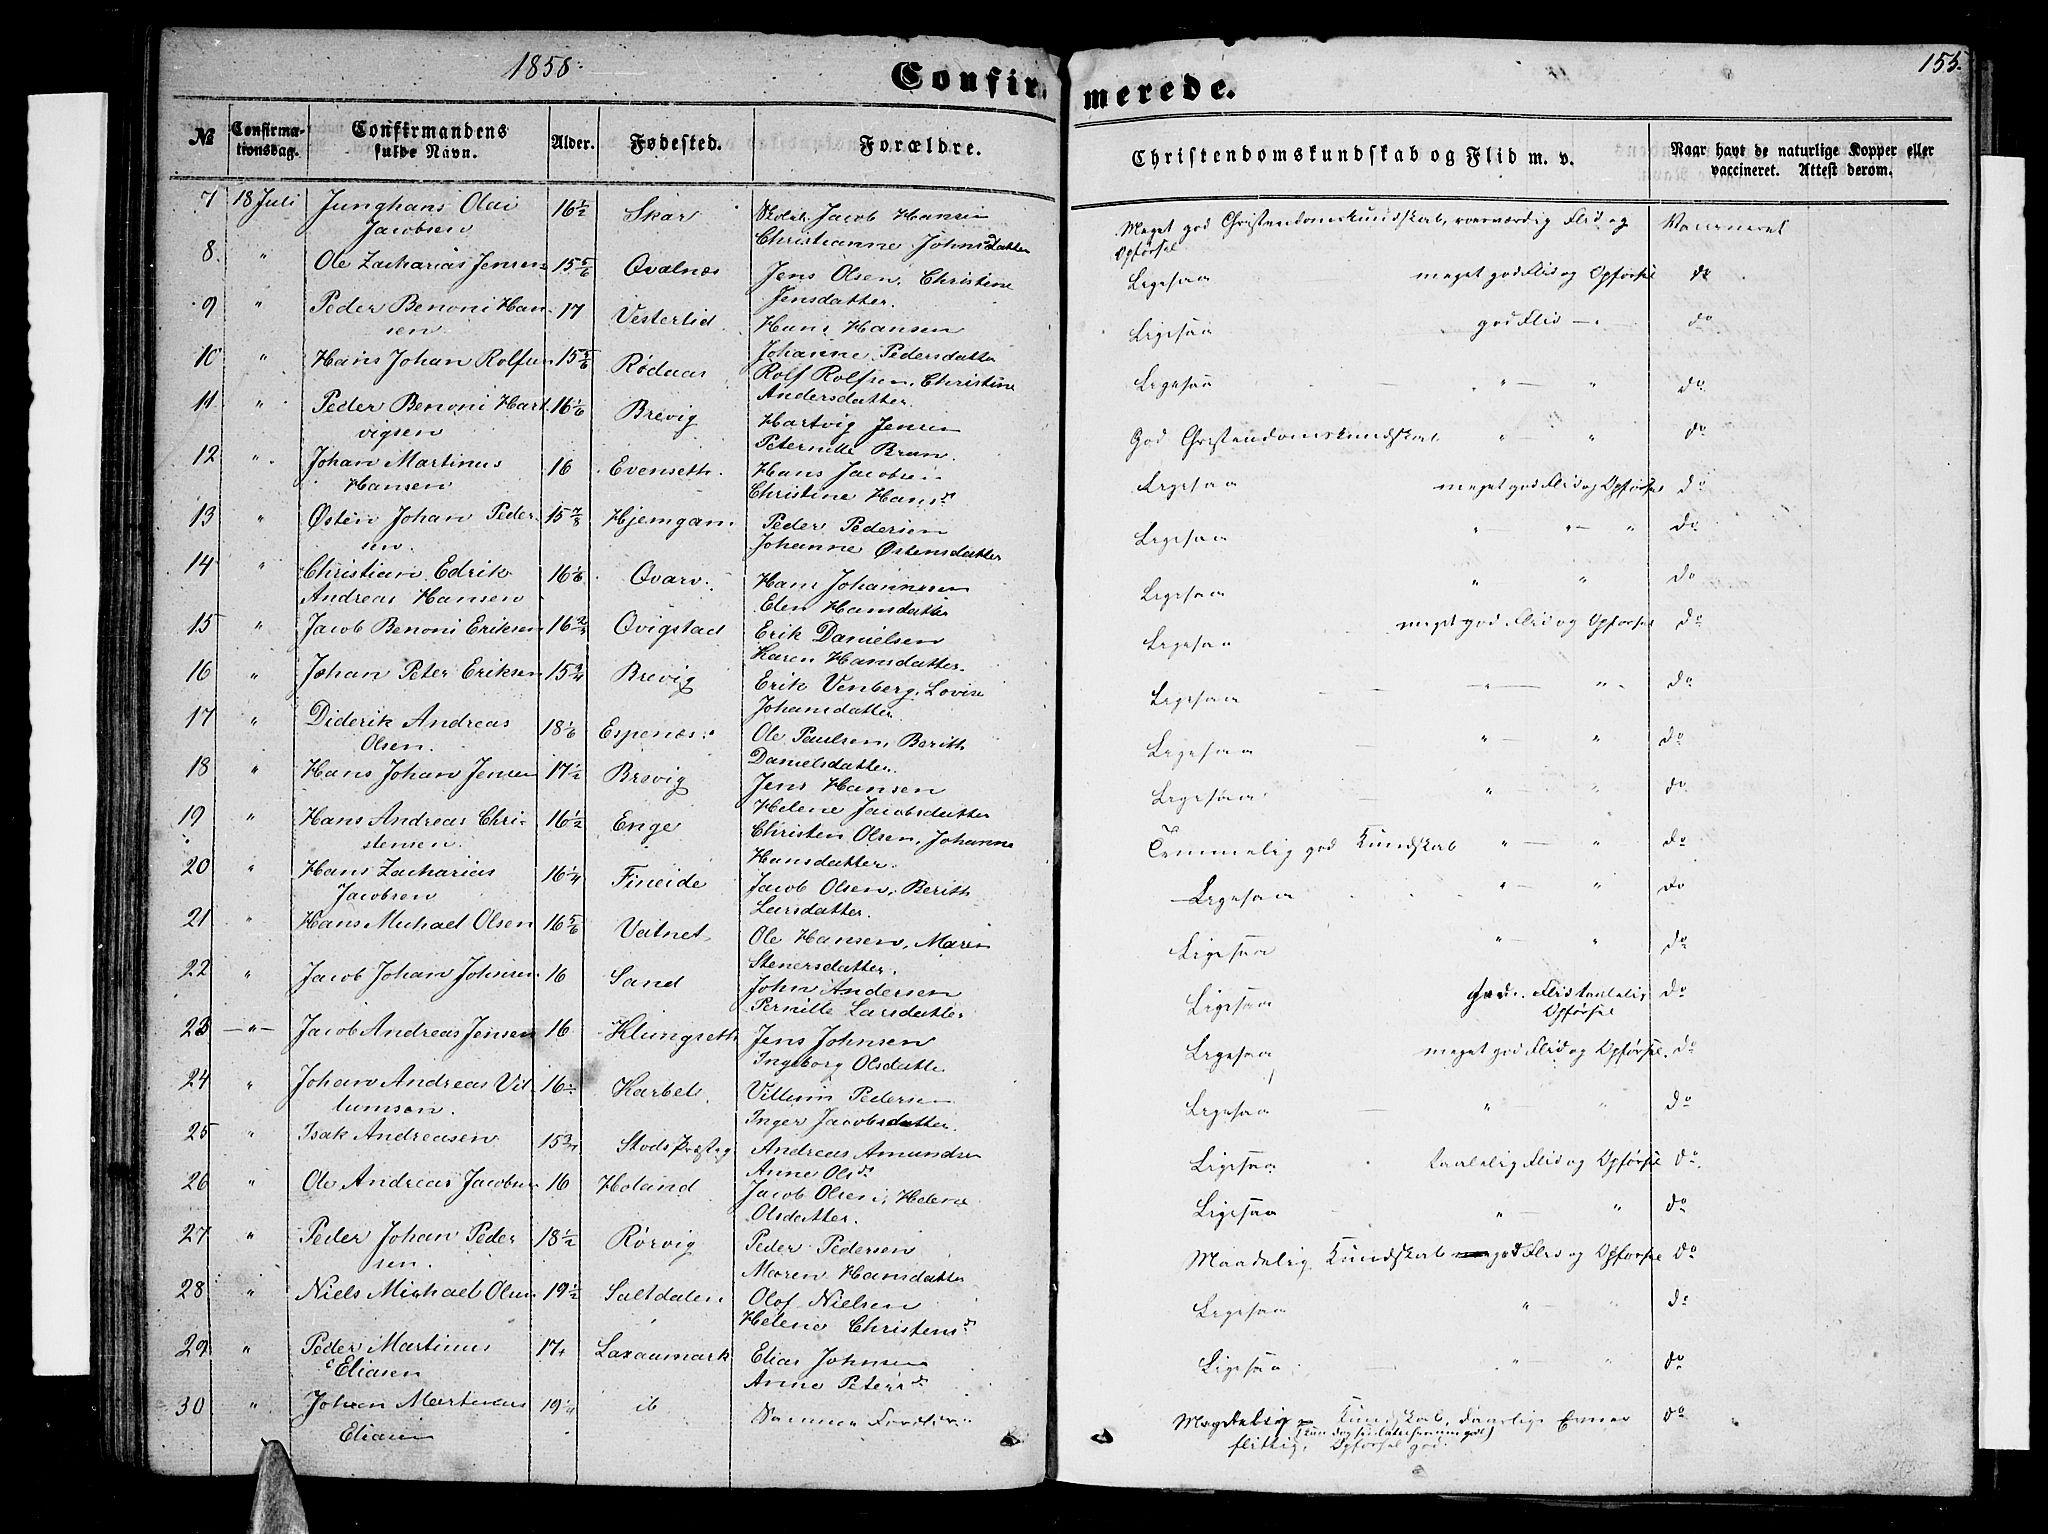 1858.
Confirmerede.
155.
№ Confirmationsdag. Confirmandens fulde Navn. Alder. Fødested. Forældre. Christendomskundskab og Flid m. v. Naar havt de naturlige Kopper eller vaccineret. Attest derom.
7 18 Juli Junghans Olai 16½ Skar Jacob Hansen Meget god Christendomskundskab, roesværdig Flid og Vaccineret
Jacobsen Christianne Johnsdatter Opførsel
8. " Ole Zacharias Jensen 15 5/6 Qvalnæs Jens Olsen, Christine Ligesaa meget god Flid og Opførsel do
Jensdatter.
9 " Peder Benoni Han- 17 Vesterlid Hans Hansen Ligesaa god Flid — . do
sen. Johanne Pedersdatter
10 " Hans Johan Rolfsen 15 5/6 Rødaas Rolf Rolfsen, Christine Ligesaa " — " do
Andersdatter.
11 " Peder Benoni Hart- 16 1/6 Brevig Hartvig Jensen God Christendomskundskab " " do
vigsen Pernille Brun.
12 " Johan Martinus 16 Evenseth. Hans Jacobsen Ligesaa meget god Flid og Opførsel do
Hansen Christine Hansd.
13 " Østen Johan Peder- 15 7/8 Hjemgam Peder Pedersen Ligesaa " " — " do
sen. Johanne Østensdatter
14 " Christian Edrik 16 1/6 Qvarv. Hans Johannesen Ligesaa " " do
Andreas Hansen Elen Hansdatter
15 " Jacob Benoni Eriksen 16 2/3 Qvigstad Erik Danielsen Ligesaa meget god Flid og Opførsel do
Karen Hansdatter.
16 " Johan Peter Eriksen 15 3/4 Brevig Erik Venberg, Lovise Ligesaa — " — " do
Johansdatter
17 " Diderik Andreas 18 1/6 Espenæs. Ole Paulsen, Berith Ligesaa " " do
Olsen. Danielsdatter.
18 " Hans Johan Jensen 17½ Brevig Jens Hansen Ligesaa — " " do
Helene Jacobsdatter
19 " Hans Andreas Chri- 16½ Enge Christen Olsen, Johanne Temmelig god Kundskab " — " do
stensen. Hansdatter.
20 " Hans Zacharias 16¼ Fineide Jacob Olsen, Berith Ligesaa " — " do
Jacobsen Larsdatter.
21 " Hans Michael Olsen 16 5/6 Vatnet, Ole Hansen, Maren Ligesaa " — " do
Stenersdatter.
22 " Jacob Johan Johnsen 16 Sand John Andersen Ligesaa Flid taalelig do
Pernille Larsdatter Opførsel
23 — " — Jacob Andreas Jensen 16 Klungseth Jens Johnsen Ligesaa meget god Flid og Opførsel. do
Ingeborg Olsdatter
24 " Johan Andreas Vil- 16 Karbøl. Villum Pedersen Ligesaa — " — " do
lumsen. Inger Jacobsdatter.
25 " Isak Andreasen 15 3/4 Stods Præsteg Andreas Amundsen Ligesaa taalelig Flid og Opførsel do.
Anne Olsd.
26 " Ole Andreas Jacobsen 16 Høland Jacob Olsen, Helena Ligesaa " — " do
Olsdatter.
27 " Peder Johan Peder 18½ Rørvig Peder Pedersen Maadelig Kundskab god Flid og Opførsel do
sen. Maren Hansdatter
28 " Niels Michael Olsen 19½ Saltdalen Olof Nielsen Ligesaa " — " do
Helene Christensd.
29 " Peder Martinus 17. Laxaamark Elias Johnsen Ligesaa " — " do
Eliasen Anne Petersd.
30 " Johan Martinus 19¼ ib Samme Forældre Kundskab, daarlige Evner do
Eliasen flittig, Opførsel god.